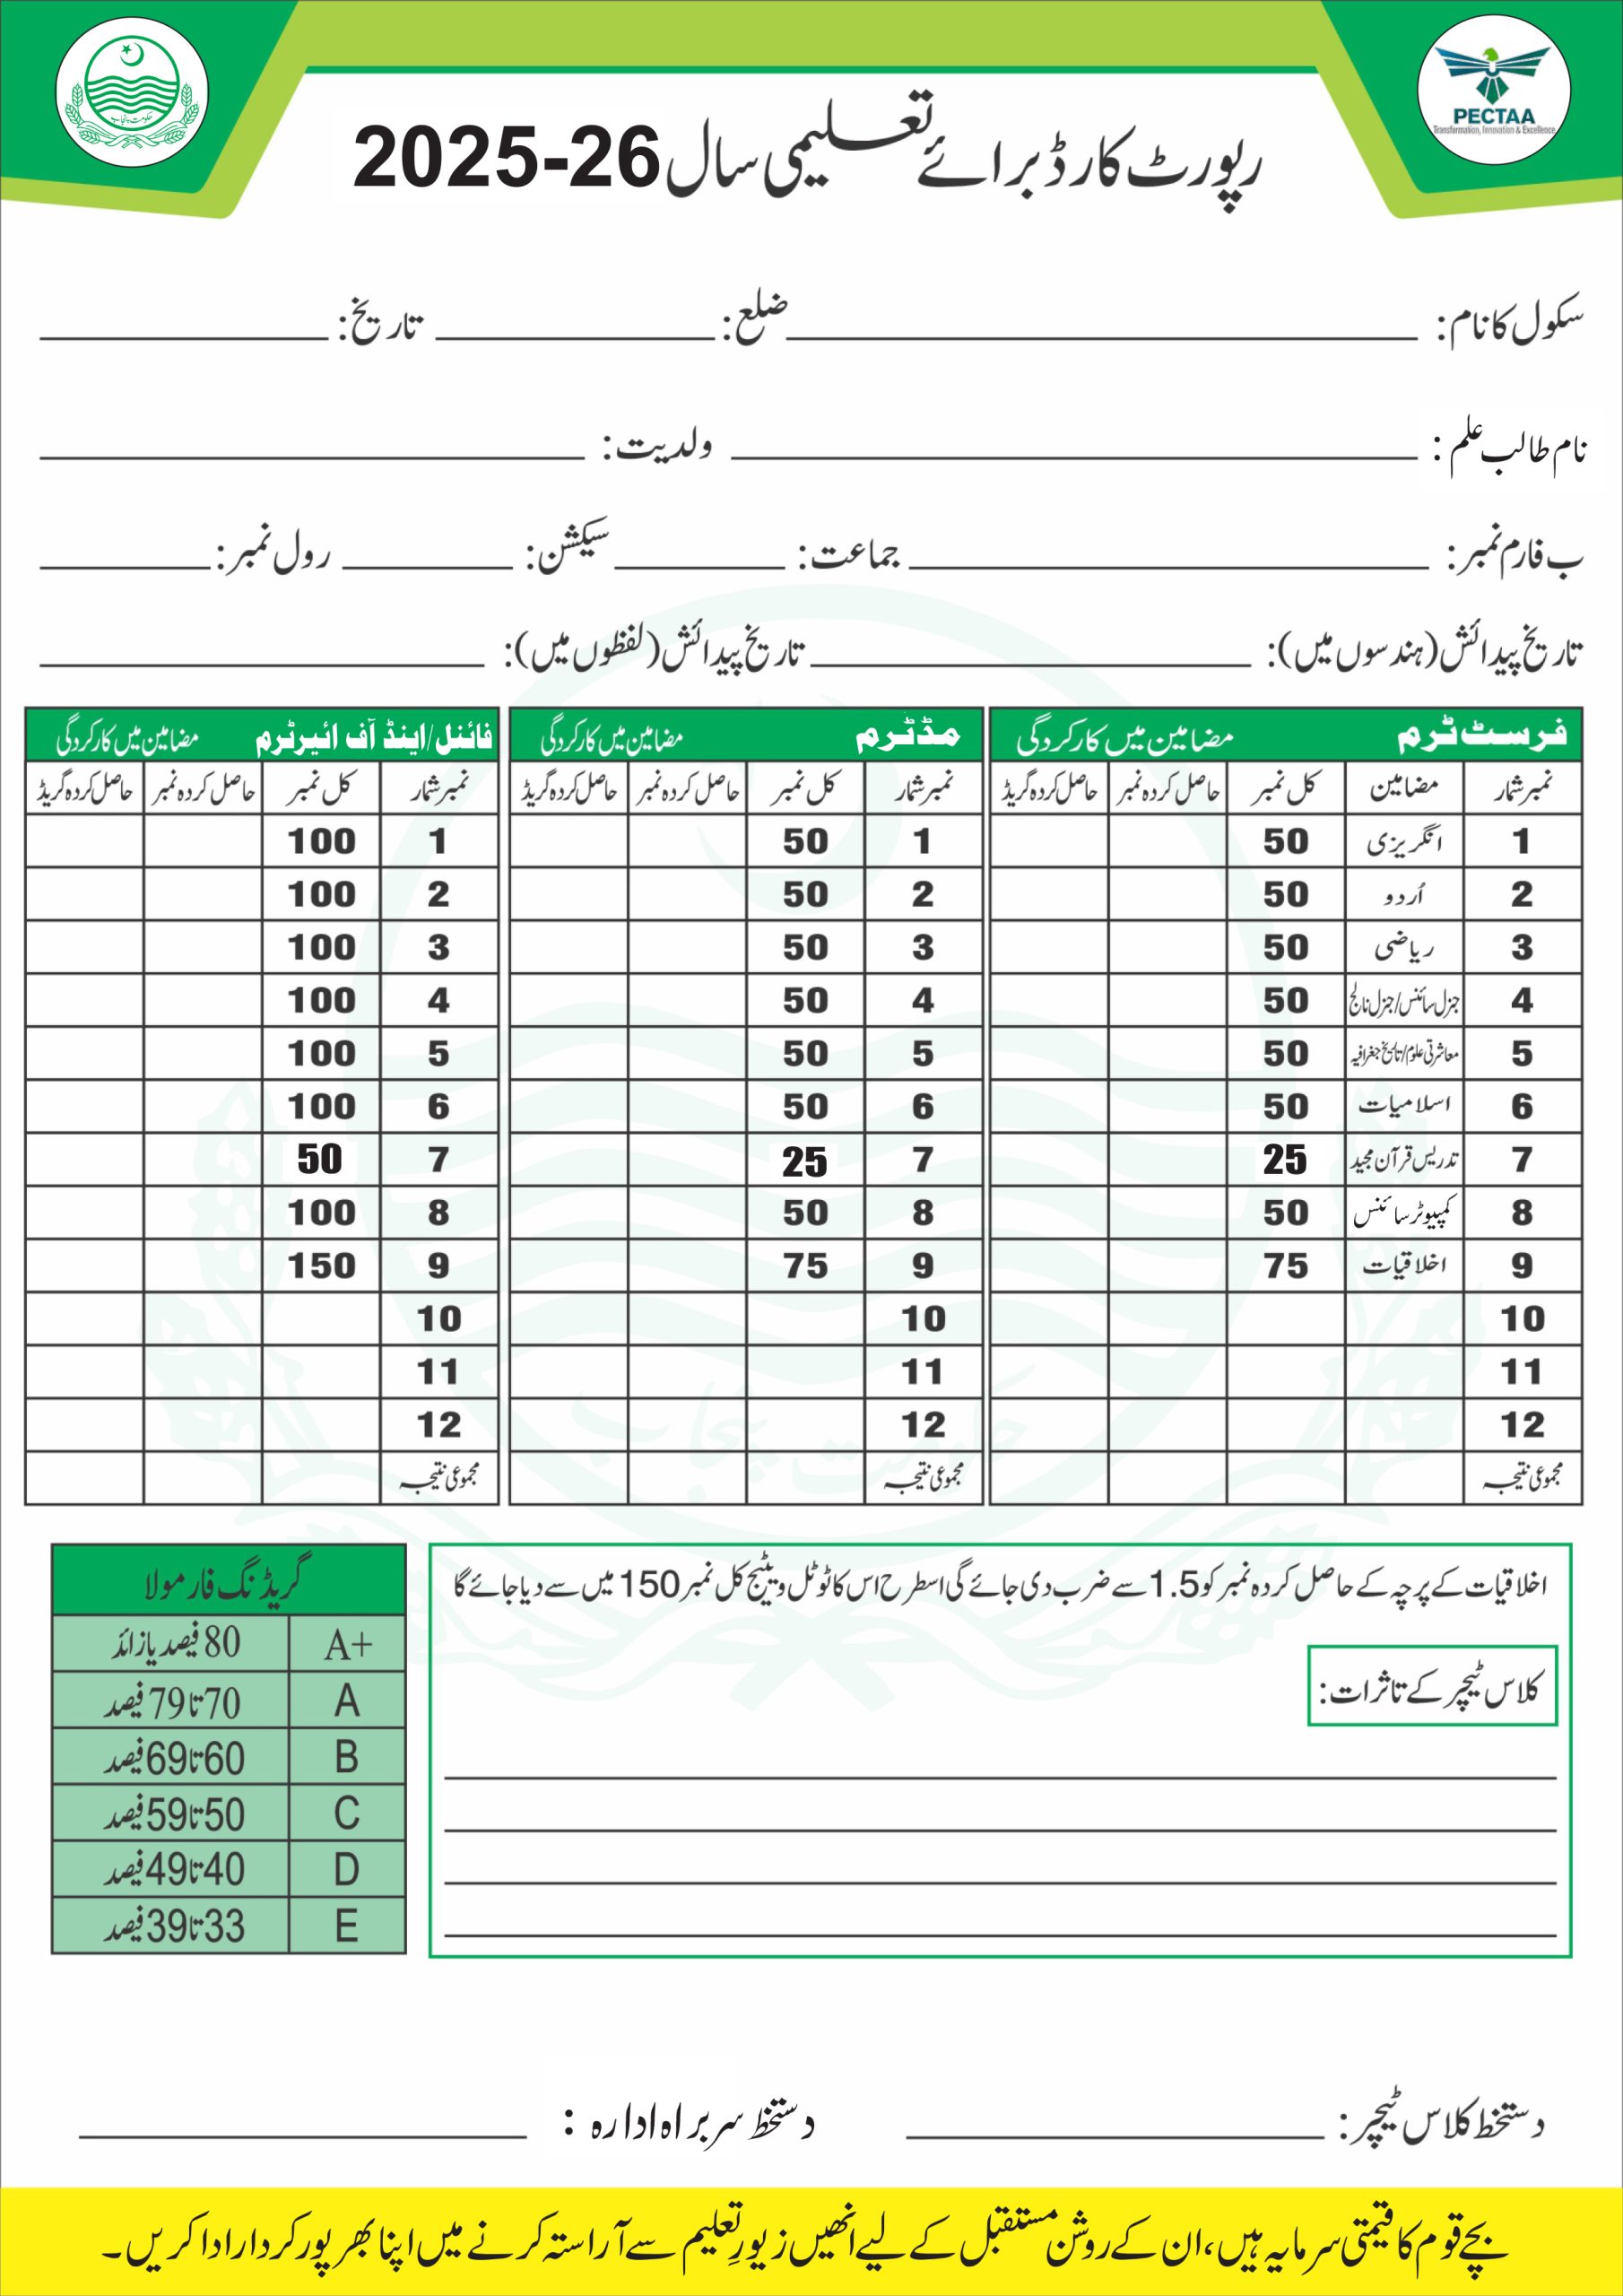 حکومت پنجاب
PECTAA
Transformation, Innovation & Excellence
رپورٹ کارڈ برائے تعلیمی سال 2025-26
سکول کا نام: ضلع: تاریخ:
نام طالب علم: ولدیت:
ب فارم نمبر: جماعت: سیکشن: رول نمبر:
تاریخ پیدائش (ہندسوں میں): تاریخ پیدائش (لفظوں میں):
فرسٹ ٹرم مضامین میں کارکردگی مڈٹرم مضامین میں کارکردگی فائنل/اینڈ آف ائیرٹرم مضامین میں کارکردگی
نمبر شمار مضامین کل نمبر حاصل کردہ نمبر حاصل کردہ گریڈ نمبر شمار کل نمبر حاصل کردہ نمبر حاصل کردہ گریڈ نمبر شمار کل نمبر حاصل کردہ نمبر حاصل کردہ گریڈ
1 انگریزی 50 1 50 1 100
2 اُردو 50 2 50 2 100
3 ریاضی 50 3 50 3 100
4 جنرل سائنس/جنرل نالج 50 4 50 4 100
5 معاشرتی علوم/تاریخ جغرافیہ 50 5 50 5 100
6 اسلامیات 50 6 50 6 100
7 تدریس قرآن مجید 25 7 25 7 50
8 کمپیوٹر سائنس 50 8 50 8 100
9 اخلاقیات 75 9 75 9 150
10 10 10
11 11 11
12 12 12
مجموعی نتیجہ مجموعی نتیجہ مجموعی نتیجہ
اخلاقیات کے پرچہ کے حاصل کردہ نمبر کو 1.5 سے ضرب دی جائے گی اسطرح اس کا ٹوٹل ویٹیج کل نمبر 150 میں سے دیا جائے گا
کلاس ٹیچر کے تاثرات:
گریڈنگ فارمولا
A+ 80 فیصد یا زائد
A 70 تا 79 فیصد
B 60 تا 69 فیصد
C 50 تا 59 فیصد
D 40 تا 49 فیصد
E 33 تا 39 فیصد
دستخط کلاس ٹیچر: دستخط سربراہ ادارہ:
بچے قوم کا قیمتی سرمایہ ہیں، ان کے روشن مستقبل کے لیے انھیں زیورِ تعلیم سے آراستہ کرنے میں اپنا بھر پور کردار ادا کریں۔